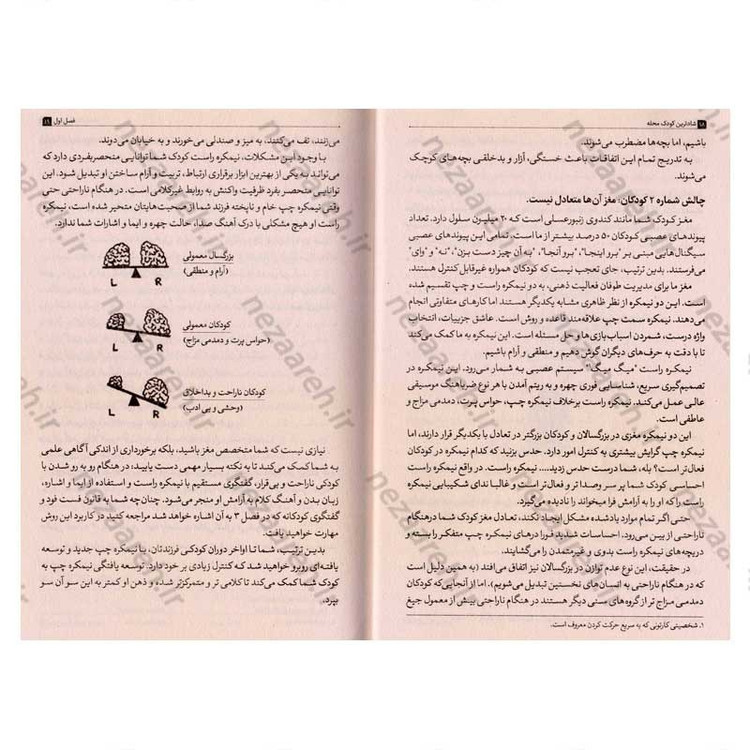 ۱۸ شادترین کودک محله
باشیم، اما بچه‌ها مضطرب می‌شوند.
به تدریج تمام این اتفاقات باعث خستگی، آزار و بدخلقی بچه‌های کوچک
می‌شوند.
چالش شماره ۲ کودکان: مغز آن‌ها متعادل نیست.
مغز کودک شما مانند کندوی زنبورعسلی است که ۲۰ میلیون سلول دارد. تعداد
پیوندهای عصبی کودکان ۵۰ درصد بیشتر از ما است. تمامی این پیوندهای عصبی
سیگنال‌هایی مبنی بر "برو اینجا"، "برو آنجا"، "به آن چیز دست بزن"، "نه" و "وای"
می‌فرستند. بدین ترتیب، جای تعجب نیست که کودکان همواره غیرقابل کنترل هستند.
مغز ما برای مدیریت طوفان فعالیت ذهنی، به دو نیمکره راست و چپ تقسیم شده
است. این دو نیمکره از نظر ظاهری مشابه یکدیگر هستند اما کارهای متفاوتی انجام
می‌دهند. نیمکره سمت چپ علاقه‌مند قاعده و روش است. عاشق جزییات، انتخاب
واژه درست، شمردن اسباب‌بازی‌ها و حل مسئله است. این نیمکره به ما کمک می‌کند
تا با دقت به حرف‌های دیگران گوش دهیم و منطقی و آرام باشیم.
نیمکره راست "میگ میگ" سیستم عصبی به شمار می‌رود. این نیمکره در
تصمیم‌گیری سریع، شناسایی فوری چهره و به ریتم آمدن با هر نوع ضرباهنگ موسیقی
عالی عمل می‌کند. نیمکره راست برخلاف نیمکره چپ، حواس پرت، دمدمی مزاج و
عاطفی است.
این دو نیمکره مغزی در بزرگسالان و کودکان بزرگتر در تعادل با یکدیگر قرار دارند، اما
نیمکره چپ گرایش بیشتری به کنترل امور دارد. حدس بزنید که کدام نیمکره در کودکان
فعال‌تر است؟ بله، شما درست حدس زدید.... نیمکره راست. در واقع نیمکره راست
احساسی کودک شما پر سر و صدا تر و فعال‌تر است و غالبا ندای شکیبایی نیمکره
راست را که او را به آرامش فرا می‎خواند را نادیده می‌گیرد.
حتی اگر تمام موارد یادشده مشکل ایجاد نکند، تعادل مغز کودک شما درهنگام
ناراحتی از بین می‌رود. احساسات شدید فورا درهای نیمکره چپ متفکر را بسته و
دریچه‌های نیمکره راست بدوی و غیرمتمدن را می‌گشایند.
در حقیقت، این نوع عدم توازن در بزرگسالان نیز اتفاق می‌افتد (به همین دلیل است
که در هنگام ناراحتی به انسان‌های نخستین تبدیل می‌شویم). اما از آنجایی‌که کودکان
دمدمی مزاج تر از گروه‌های سنی دیگر هستند در هنگام ناراحتی بیش از معمول جیغ
۱. شخصیتی کارتونی که به سریع حرکت کردن معروف است.
فصل اول ۱۹
می‌زنند، تف می‌کنند، به میز و صندلی می‌خورند و به خیابان می‌دوند.
با وجود این مشکلات، نیمکره راست کودک شما توانایی منحصربفردی دارد که
می‌تواند به یکی از بهترین ابزار برقراری ارتباط، تربیت و آرام ساختن او تبدیل شود. این
توانایی منحصر بفرد ظرفیت واکنش به روابط غیرکلامی است. در هنگام ناراحتی حتی
وقتی نیمکره چپ خام و ناپخته فرزند شما از صحبت‌هایتان متحیر شده است، نیمکره
راست او هیچ مشکلی با درک آهنگ صدا، حالت چهره و ایما و اشارات شما ندارد.
بزرگسال معمولی
(آرام و منطقی)
L R
کودکان معمولی
(حواس پرت و دمدمی مزاج)
L R
کودکان ناراحت و بداخلاق
(وحشی و بی ادب)
L R
نیازی نیست که شما متخصص مغز باشید، بلکه برخورداری از اندکی آگاهی علمی
به شما کمک می‌کند تا به نکته بسیار مهمی دست یابید: در هنگام رو به رو شدن با
کودکی ناراحت و بی‌قرار، گفتگوی مستقیم با نیمکره راست و استفاده از ایما و اشاره،
زبان بدن و آهنگ کلام به آرامش او منجر می‌شود. چنان‌چه شما به قانون فست فود و
گفتگوی کودکانه که در فصل ۳ به آن اشاره خواهد شد مراجعه کنید در کاربرد این روش
مهارت خواهید یافت.
بدین ترتیب، شما تا اواخر دوران کودکی فرزندتان، با نیمکره چپ جدید و توسعه
یافته‌ای روبرو خواهید شد که کنترل زیادی بر خود دارد. توسعه یافتگی نیمکره چپ به
کودک شما کمک می‌کند تا کلامی تر و متمرکزتر شده و ذهن او کمتر به این سو آن سو
بپرد.
nezaareh.ir